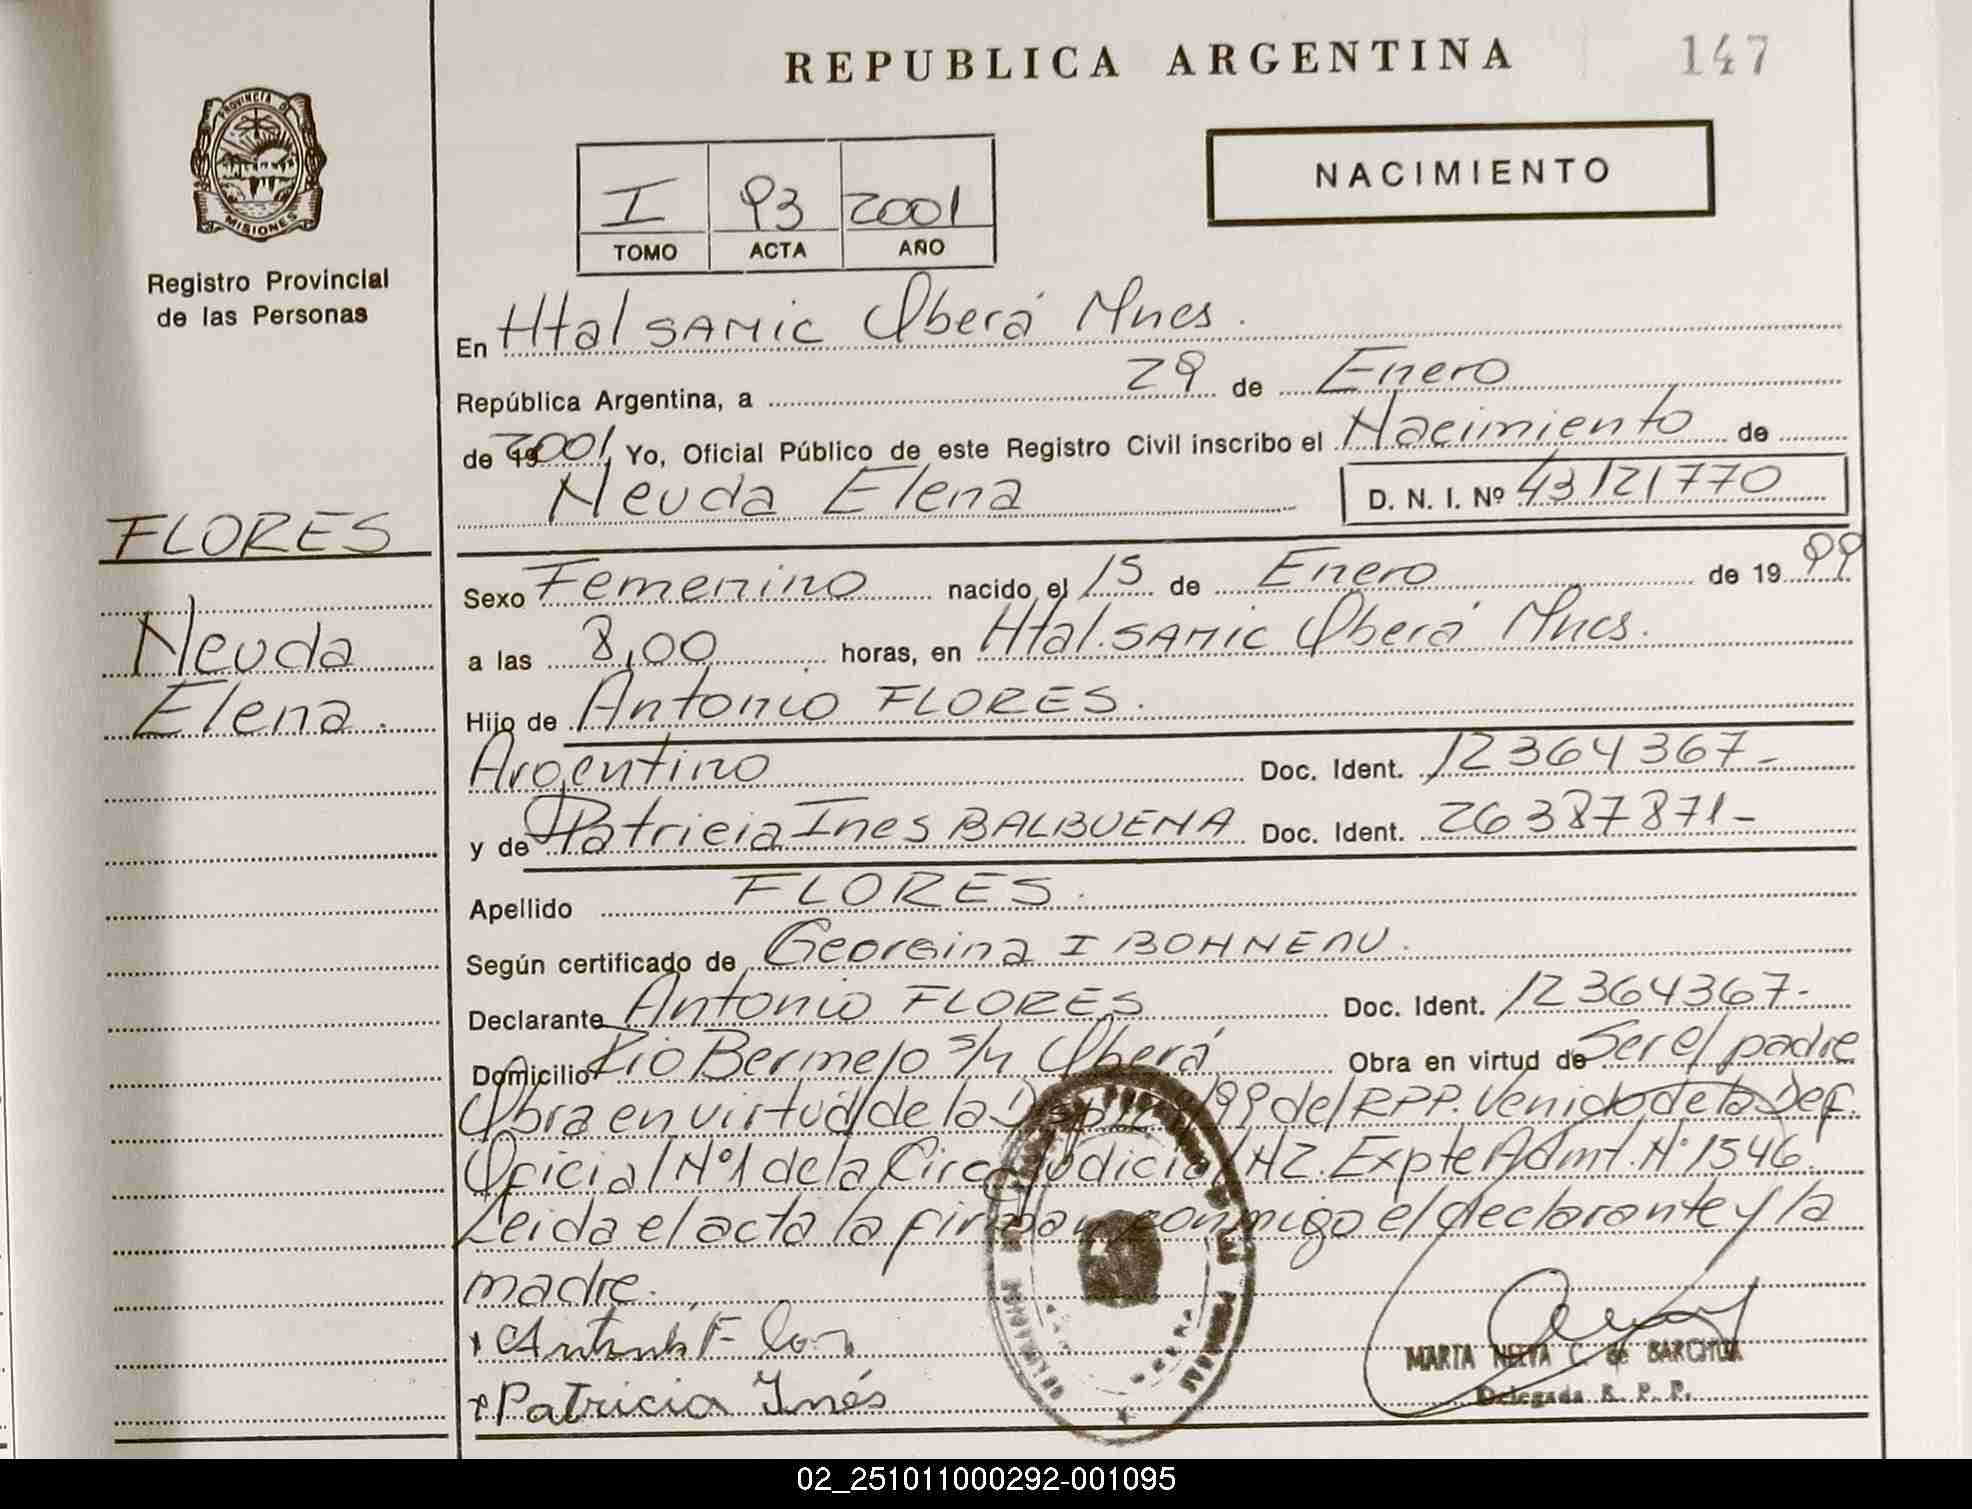 REPUBLICA ARGENTINA
147
PROVINCIA DE
MISIONES
Registro Provincial
de las Personas
NACIMIENTO
I 93 2001
TOMO ACTA AÑO
En Htal SAMIC Oberá Mnes.
República Argentina, a 29 de Enero
de 2001 Yo, Oficial Público de este Registro Civil inscribo el Nacimiento de
Neuda Elena D. N. I. Nº 43121770
FLORES
Neuda
Elena.
Sexo Femenino nacido el 15 de Enero de 19 99
a las 8,00 horas, en Htal. SAMIC Oberá Mnes.
Hijo de Antonio FLORES.
Argentino Doc. Ident. 12364367-
y de Patricia Ines BALBUENA Doc. Ident. 26387871-
Apellido FLORES.
Según certificado de Georgina I BOHNEAU.
Declarante Antonio FLORES Doc. Ident. 12364367-
Domicilio Rio Bermejo s/n Oberá Obra en virtud de Ser el padre
Obra en virtud de la /99 del RPP. Venido de la Def.
Oficial Nº1 de la Circ Judicial NZ. Expte Admt. Nº 1546.
Leida el acta la firman conmigo el declarante y la
madre.
Patricia Inés
MARTA NELVA C. de
Delegada R. P. P.
02_251011000292-001095